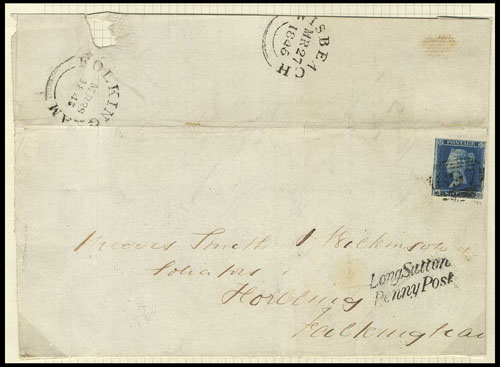 WISBEACH
MR 27
1846
FOLKINGHAM
MR 28
1846
POSTAGE
Smith & Wilkinson
Solicitors
Horbling
Falkingham
Long Sutton
Penny Post